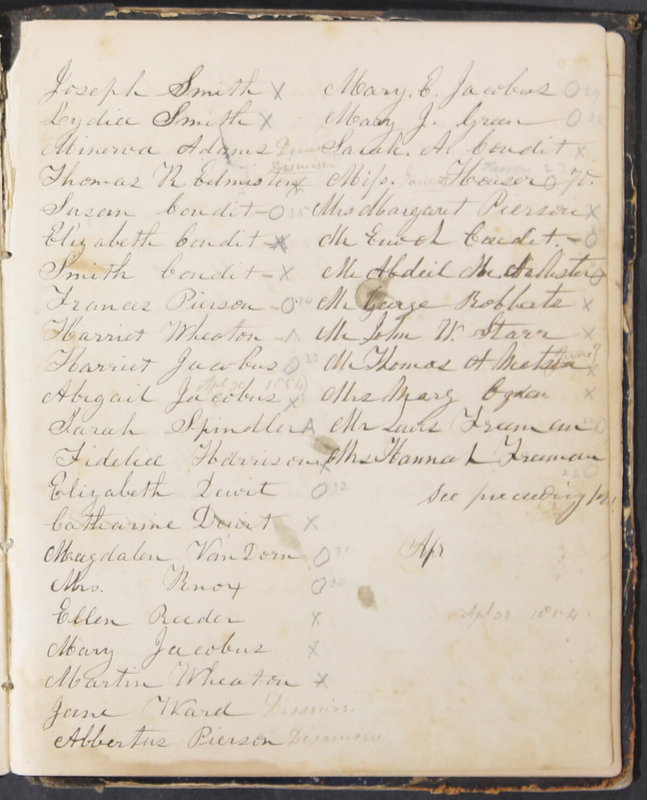 Joseph Smith X
Lydia Smith X
Minerva Adams
Thomas R Edmiston X Dismissed
Susan Condit - O
Elizabeth Condit - X
Smith Condit - X
Frances Pierson - O
Harriet Wheaton -
Harriet Jacobus O
Abigail Jacobus X Apl 30 1854
Sarah Spindler A
Fidelia Harrison
Elizabeth Dewit O 32
Catharine Dewit X
Magdalen Van Dorn O
Mrs. Knox O
Ellen Reeder X
Mary Jacobus X
Martin Wheaton X
Jane Ward Dismissed
Abbertus Pierson Dismissed
Mary. E. Jacobus O 29
Mary J. Green O
Sarah. A. Condit X
Miss. Houser O
Mrs Margaret Pierson X
Mr Enoch Condet. - O
Mr Abdeil
Mr George Robberts X
Mr John W. Starr X
Mr Thomas H X
Mrs Mary Ogden X
Mr Lewis Freeman O
Mrs Hannah Freeman
O
See preceeding
Apr
Apl 30 1854